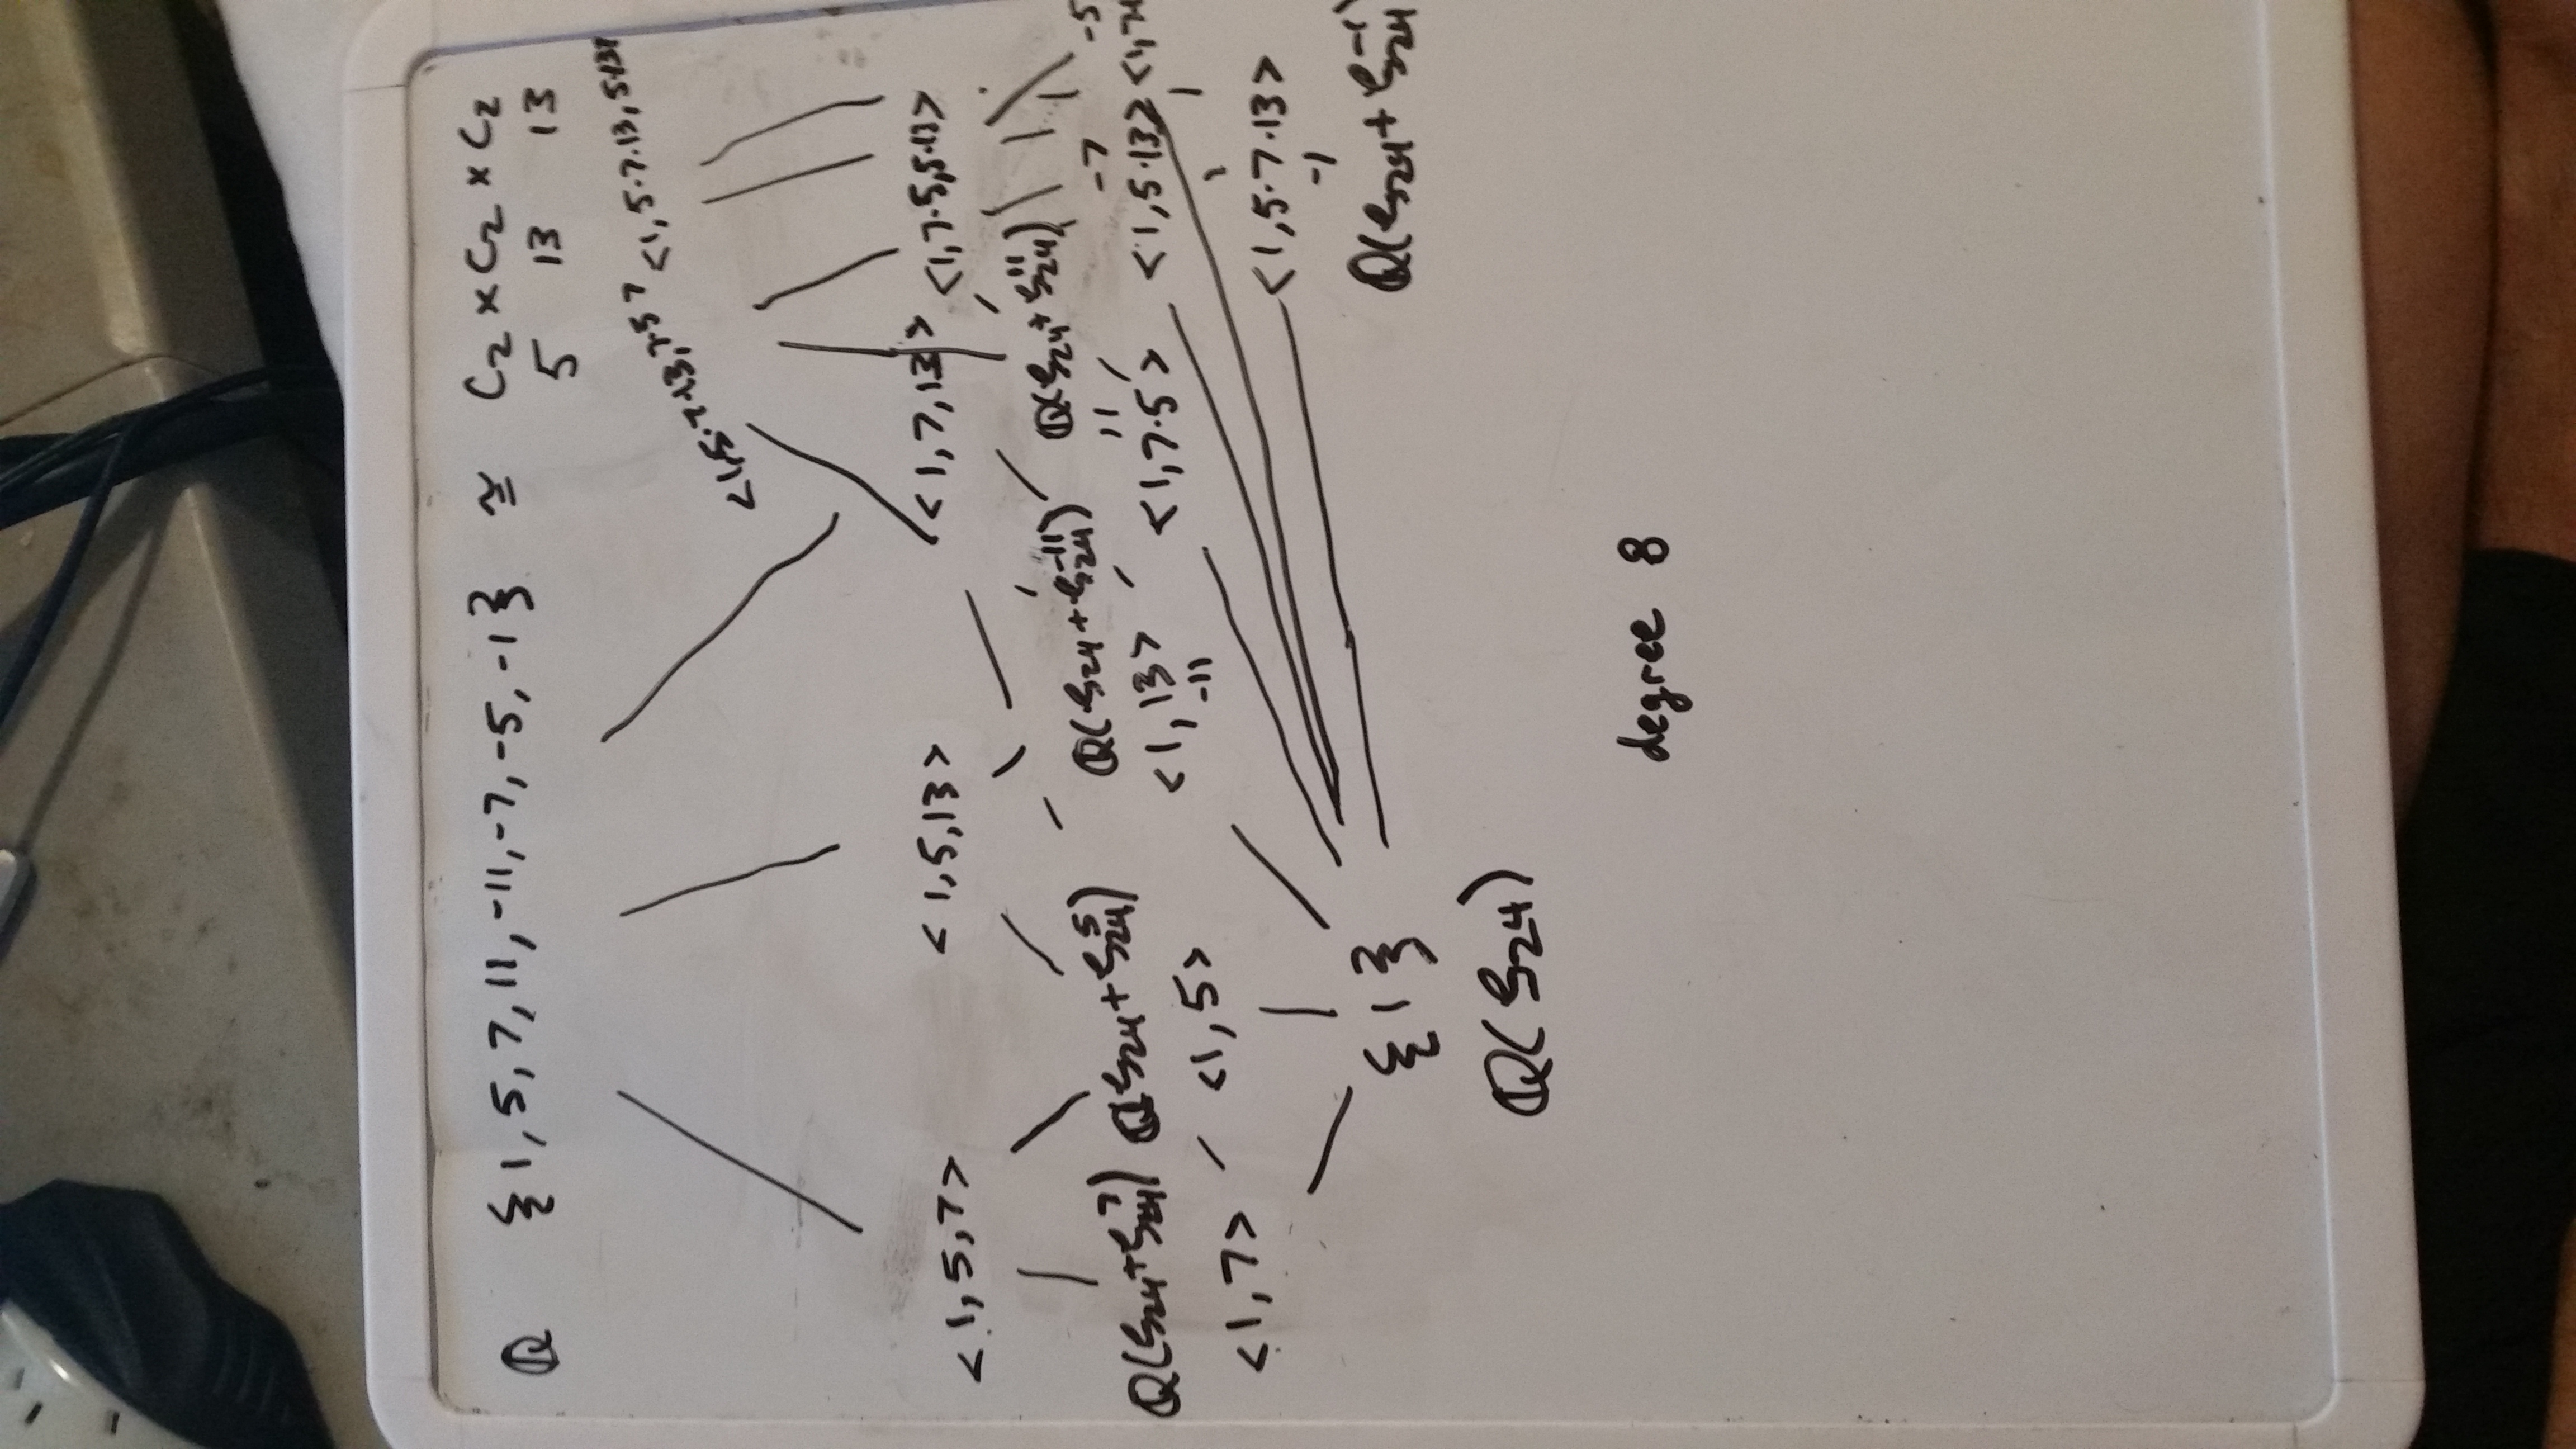 ℚ {1, 5, 7, 11, -11, -7, -5, -1} ≅ C₂ × C₂ × C₂
5 13 13
<1,5·7·13,7·5> <1,5·7·13,5·13>
<1,5,7> <1,5,13> <1,7,13> <1,7·5,5·13>
ℚ(ζ₂₄+ζ₂₄⁷) ℚ(ζ₂₄+ζ₂₄⁵) ℚ(ζ₂₄+ζ₂₄⁻¹¹) ℚ(ζ₂₄+ζ₂₄¹¹)
11 -7 -5
<1,7> <1,5> <1,13> <1,7·5> <1,5·13>
-11
<1,5·7·13>
-1
{1} ℚ(ζ₂₄+ζ₂₄⁻¹
ℚ(ζ₂₄)
degree 8